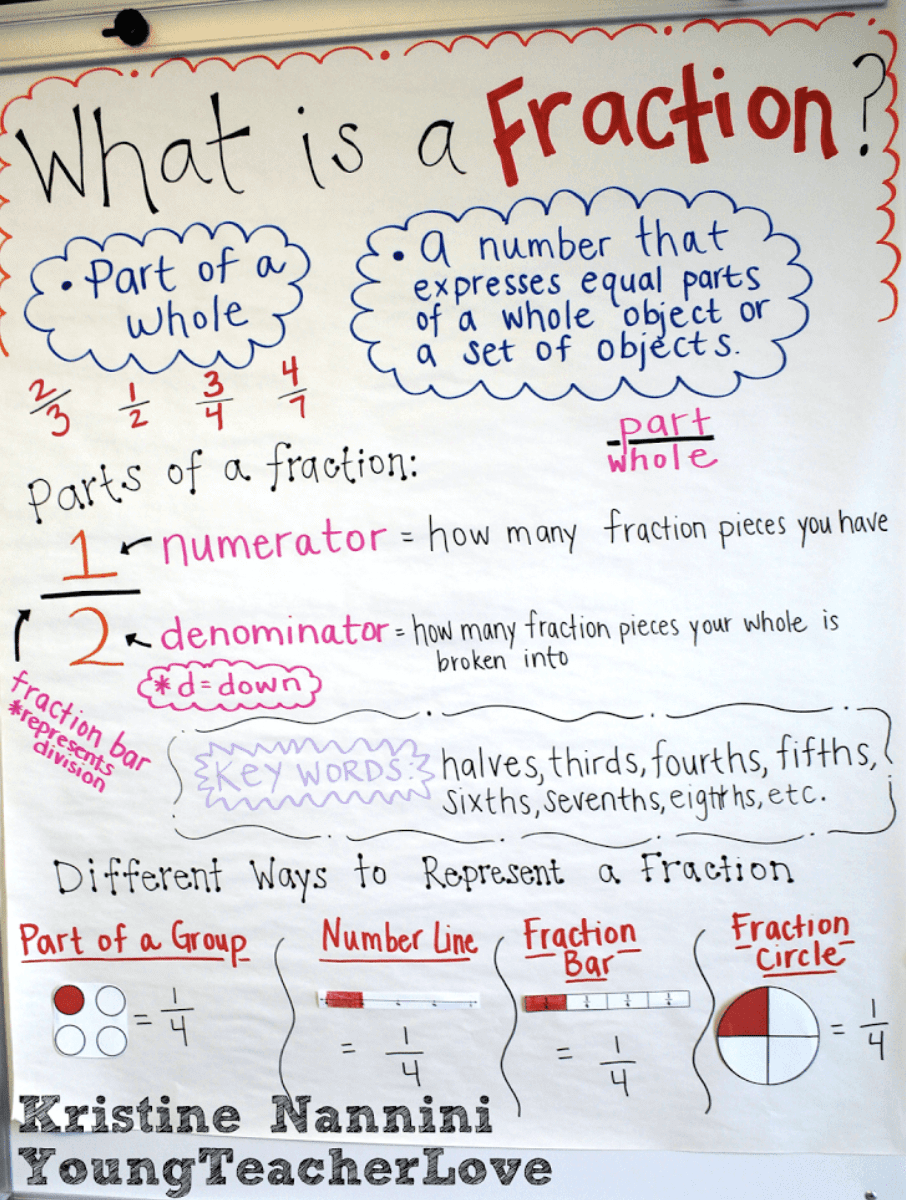 What is a Fraction?
• Part of a
whole
• a number that
expresses equal parts
of a whole object or
a set of objects.
2/3 1/2 3/4 4/7
part
whole
Parts of a fraction:
1 numerator = how many fraction pieces you have
2 denominator = how many fraction pieces your whole is
broken into
*d=down
fraction bar
*represents
division
KEY WORDS: halves, thirds, fourths, fifths,
sixths, sevenths, eighths, etc.
Different Ways to Represent a Fraction
Part of a Group
= 1/4
Number Line
= 1/4
Fraction
Bar
= 1/4
Fraction
Circle
= 1/4
Kristine Nannini
YoungTeacherLove